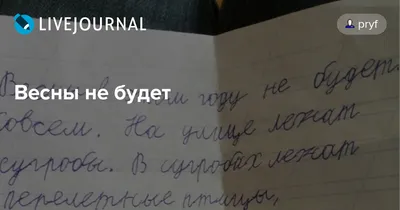 LIVEJOURNAL
pryf
Весны не будет
Весны в этом году не будет
совсем. На улице лежат
сугробы. В сугробах лежат
перелетные птицы,